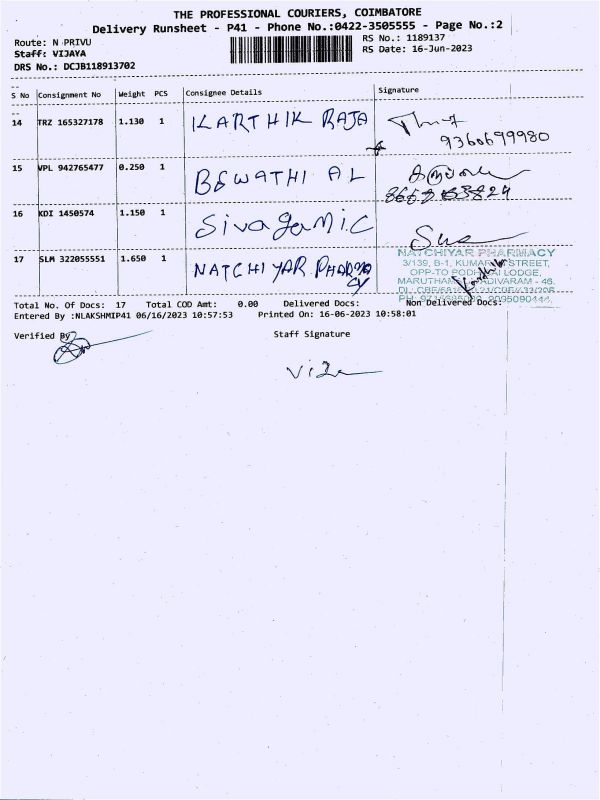 THE PROFESSIONAL COURIERS, COIMBATORE
Delivery Runsheet - P41 - Phone No.:0422-3505555 - Page No.:2
Route: N PRIVU RS No.: 1189137
Staff: VIJAYA RS Date: 16-Jun-2023
DRS No.: DCJB118913702
S No Consignment No Weight PCS Consignee Details Signature
14 TRZ 165327178 1.130 1 KARTHIK RAJA
9360699980
15 VPL 942765477 0.250 1 AL
16 KDI 1450574 1.150 1 Sivagami.C
17 SLM 322055551 1.650 1 NATCHIYAR PHARMACY
NATCHIYAR PHARMACY
3/139, B-1, STREET,
OPP-TO LODGE,
46.
Total No. Of Docs: 17 Total COD Amt: 0.00 Delivered Docs: Non Delivered Docs:
Entered By :NLAKSHMIP41 06/16/2023 10:57:53 Printed On: 16-06-2023 10:58:01
Verified By Staff Signature